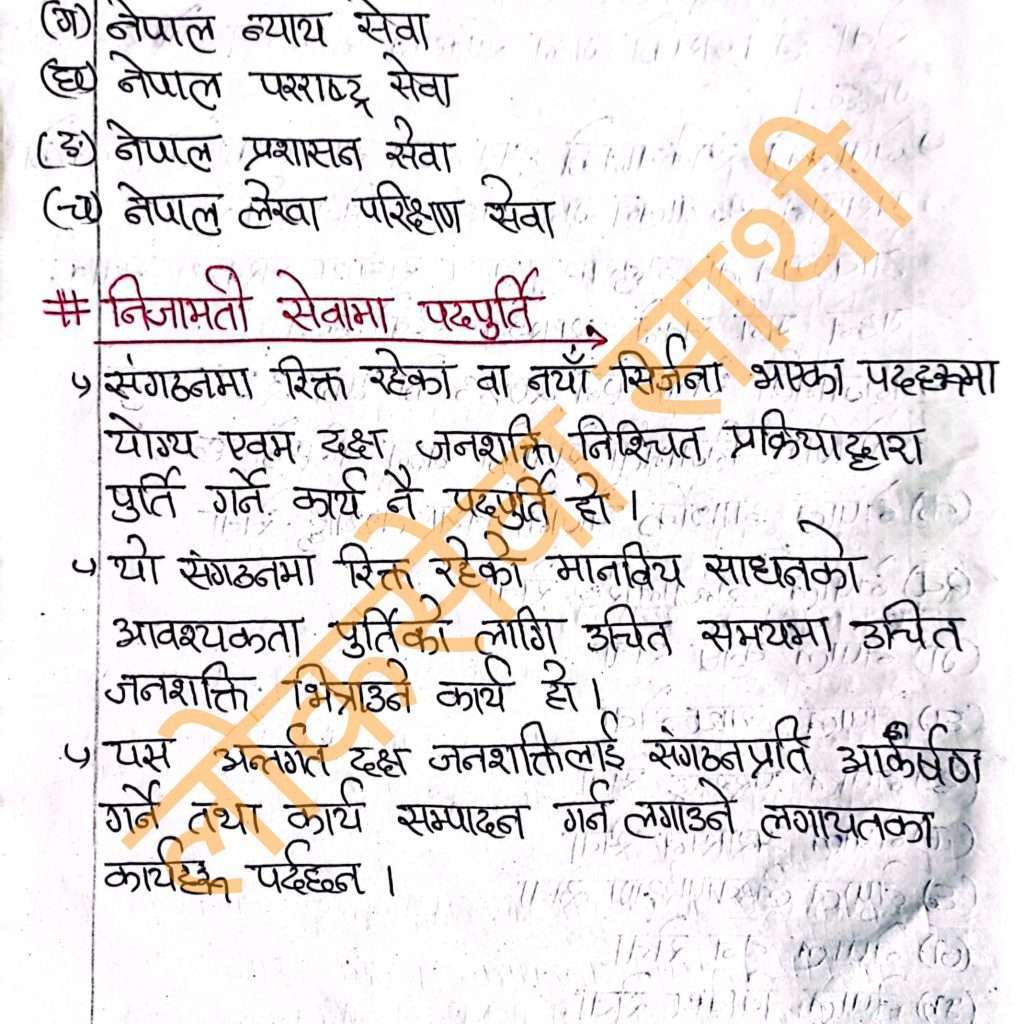 (ग) नेपाल न्याय सेवा
(घ) नेपाल परराष्ट्र सेवा
(ङ) नेपाल प्रशासन सेवा
(च) नेपाल लेखा परिक्षण सेवा
# निजामती सेवामा पदपुर्ति
संगठनमा रिक्त रहेका वा नयाँ सिर्जना भएका पदहरूमा
योग्य एवम दक्ष जनशक्ति निश्चित प्रक्रियाद्वारा
पुर्ति गर्ने कार्य नै पदपुर्ति हो ।
यो संगठनमा रिक्त रहेको मानविय साधनको
आवश्यकता पुर्तिको लागि उचित समयमा उचित
जनशक्ति भित्राउने कार्य हो ।
यस अन्तर्गत दक्ष जनशक्तिलाई संगठनप्रति आकर्षण
गर्ने तथा कार्य सम्पादन गर्न लगाउने लगायतका
कार्यहरू पर्दछन ।
लोकसेवा साथी